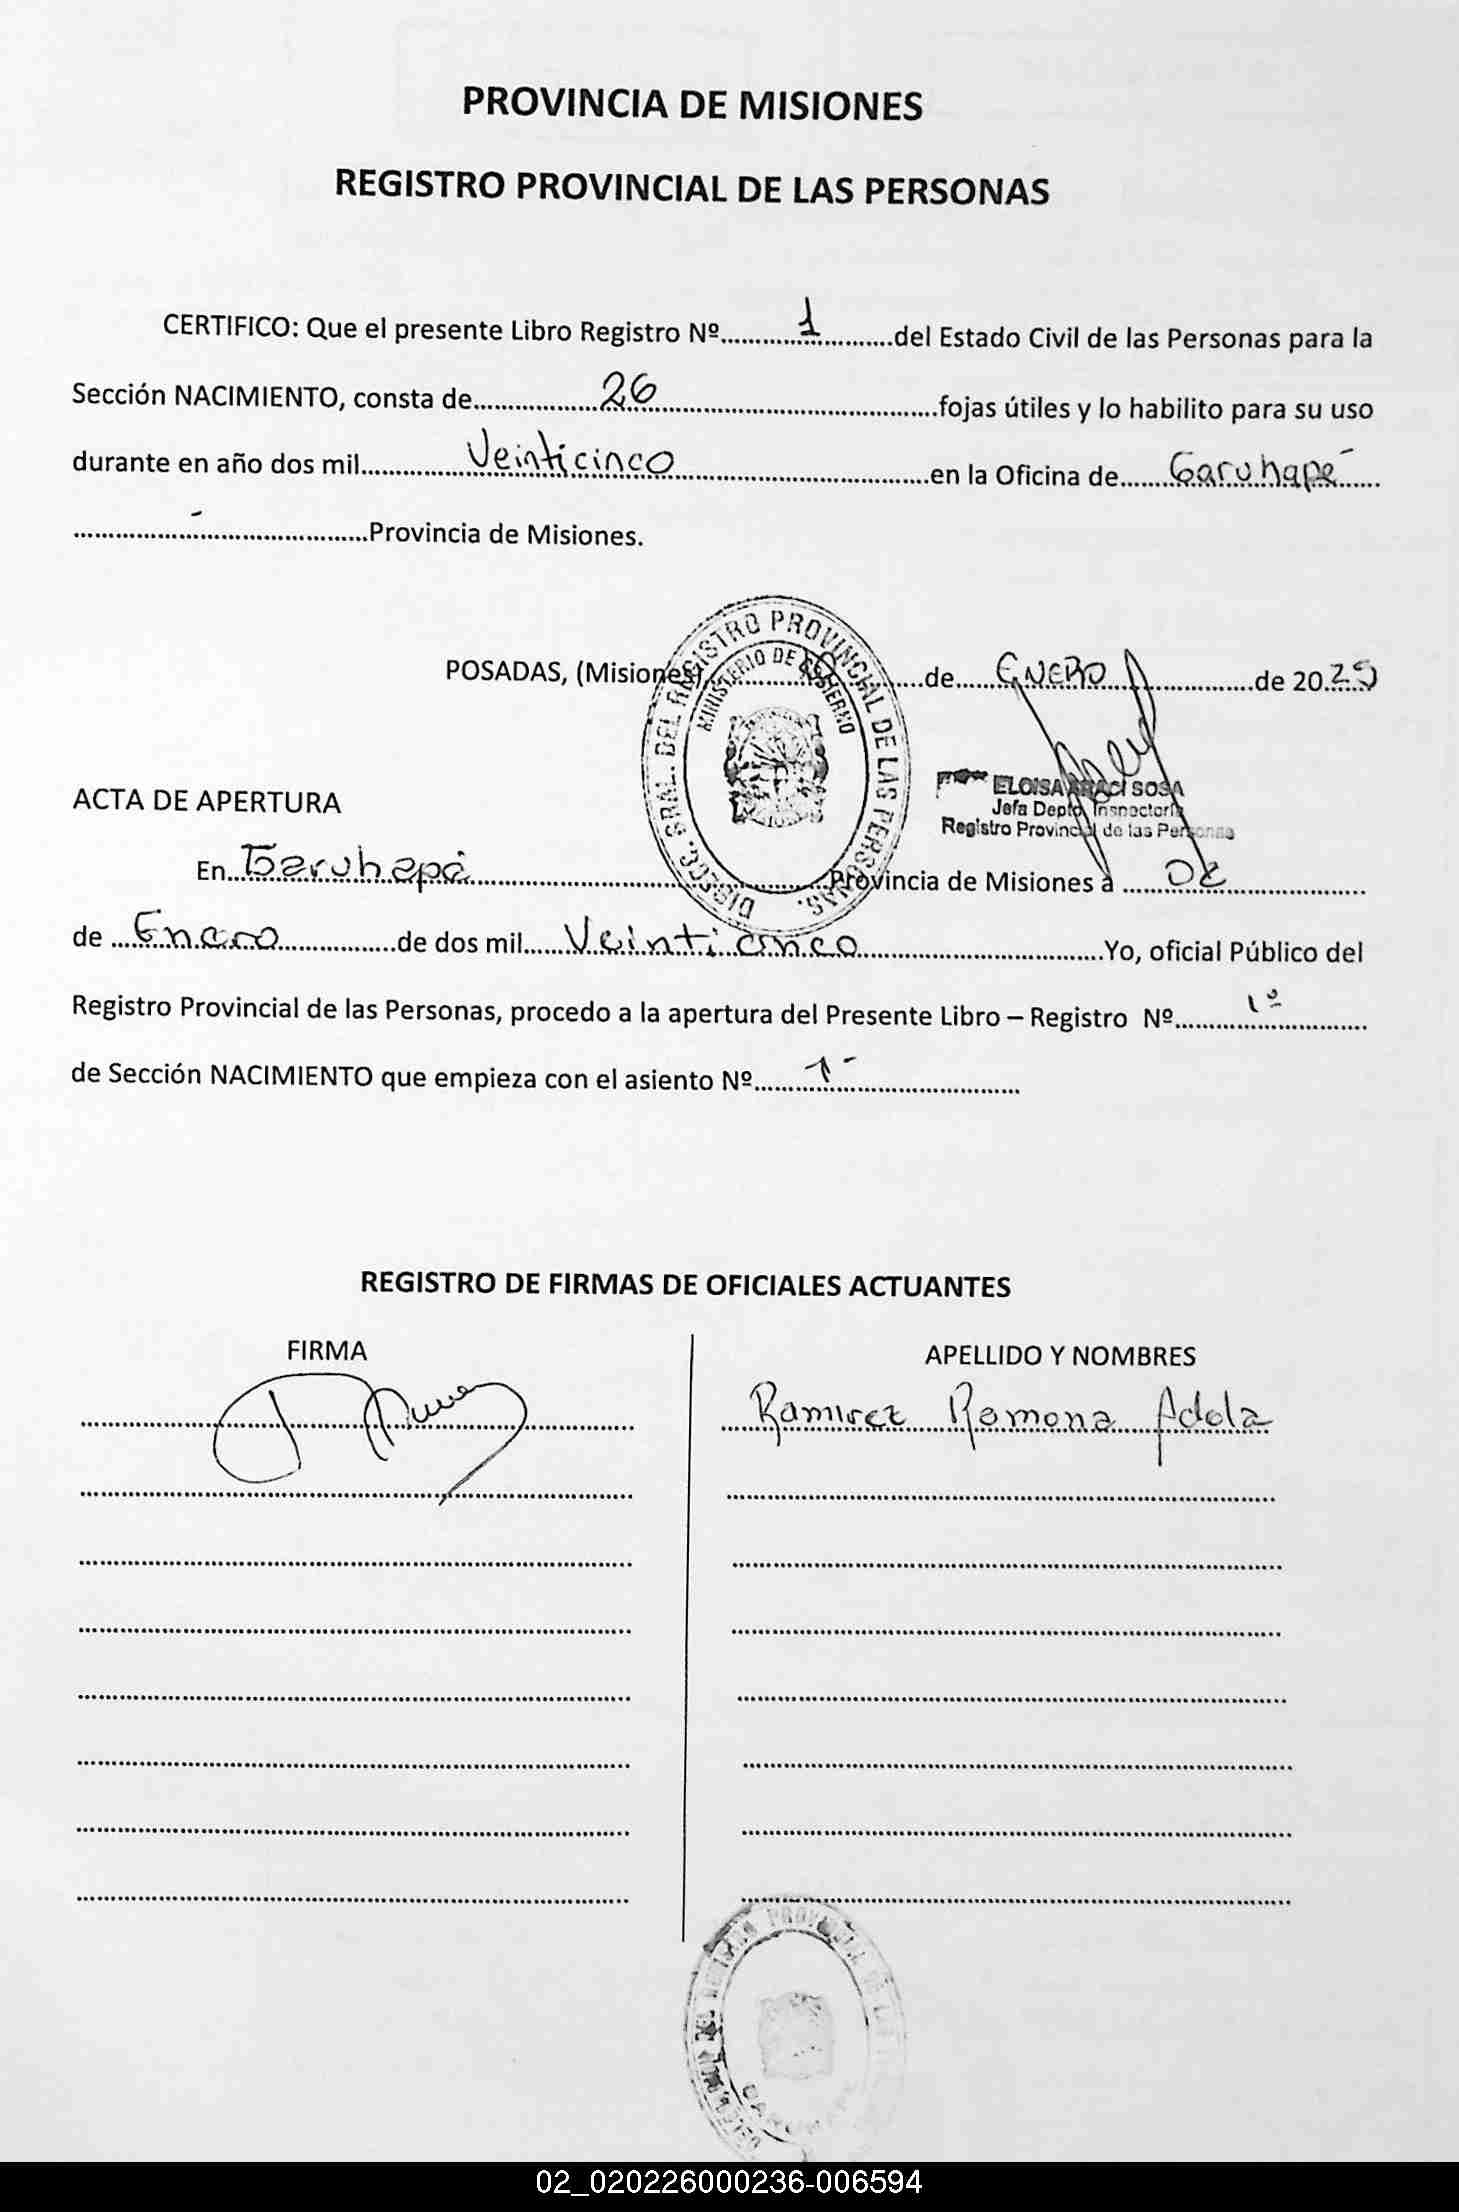 PROVINCIA DE MISIONES
REGISTRO PROVINCIAL DE LAS PERSONAS
CERTIFICO: Que el presente Libro Registro Nº 1 del Estado Civil de las Personas para la
Sección NACIMIENTO, consta de 26 fojas útiles y lo habilito para su uso
durante en año dos mil Veinticinco en la Oficina de Garuhapé
- Provincia de Misiones.
DIRECC. GRAL. DEL REGISTRO PROVINCIAL DE LAS PERSONAS.
MINISTERIO DE GOBIERNO
POSADAS, (Misiones) de ENERO de 2025
ELOISA ARACI SOSA
Jefa Depto Inspectoría
Registro Provincial de las Personas
ACTA DE APERTURA
En Garuhapé Provincia de Misiones a 02
de Enero de dos mil Veinticinco Yo, oficial Público del
Registro Provincial de las Personas, procedo a la apertura del Presente Libro – Registro Nº 1º
de Sección NACIMIENTO que empieza con el asiento Nº 1-
REGISTRO DE FIRMAS DE OFICIALES ACTUANTES
FIRMA APELLIDO Y NOMBRES
Ramirez Ramona Adela
GARUHAPE
02_020226000236-006594